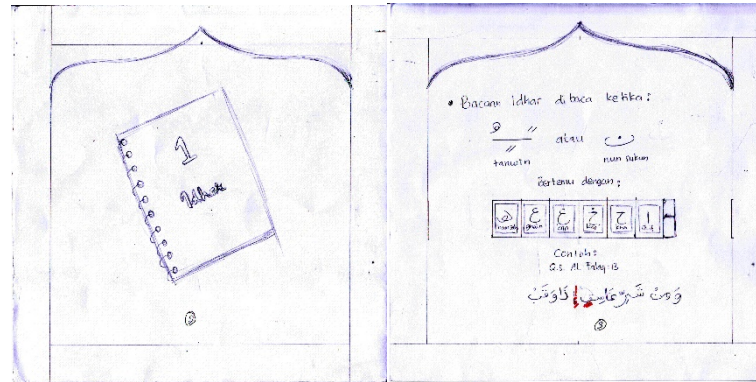 1
Idhar
2
• Bacaan idhar dibaca ketika:
atau نْ
tanwin nun sukun
Bertemu dengan:
ح ا
Contoh:
Q.S. Al Falaq:3
وَمِنْ شَرِّ غَاسِقٍ إِذَا وَقَبَ
3